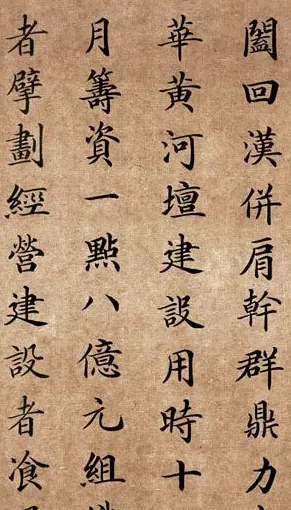 闔回漢併肩幹群鼎力
華黃河壇建設用時十
月籌資一點八億元組
者擘劃經營建設者飡